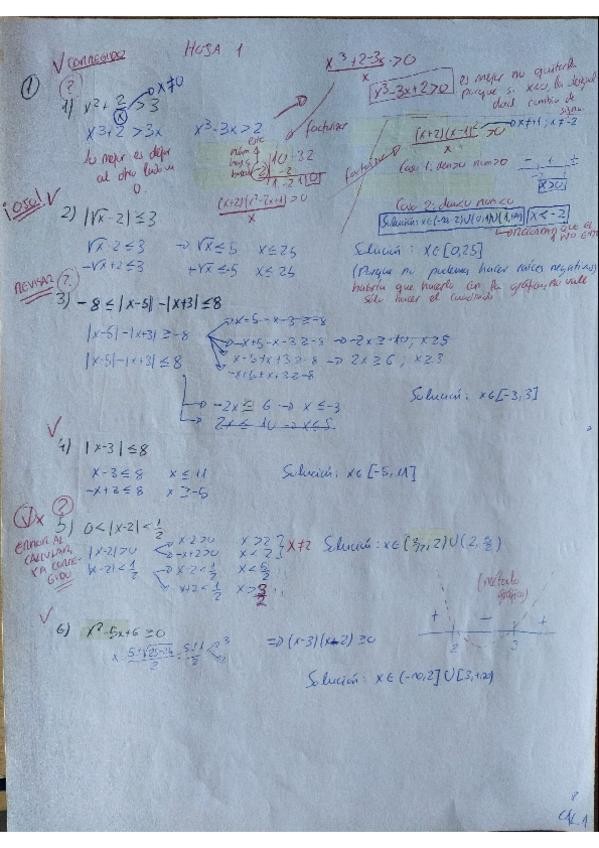 ✓ CORREGIDO
HOJA 1
①
?
1) x² + 2/x > 3
x≠0
x³+2 > 3x
x³-3x > 2
Lo mejor es dejar
al otro lado un
0.
(x³+2-3x)/x > 0
x³-3x+2>0
es mejor no quitarla
porque si x<0, la desigual
dará cambio de
signo
factorizar
1 0 -3 2
((x+2)(x²-2x+1))/x > 0
factorizar
((x+2)(x-1)²)/x > 0
x≠1; x≠-2
Caso 1: den>0 num>0
x>0
Caso 2: den<0 num<0
Solución: x∈(-∞,-2)U(0,1)U(1,+∞)
x<-2
¡OJO! ✓
2) |√x-2| ≤ 3
√x-2 ≤ 3 → √x ≤ 5 x ≤ 25
-√x+2 ≤ 3
x ≤ 25
Solución: x∈[0,25]
(Porque no podemos hacer raíces negativas)
habría que hacerla con la gráfica, no vale
solo hacer el cuadrado
REVISAR ?
3) -8 ≤ |x-5| - |x+3| ≤ 8
|x-5| - |x+3| ≥ -8
x-5-x-3 ≥ -8
-x+5-x-3 ≥ -8 → -2x ≥ -10; x ≥ 5
|x-5| - |x+3| ≤ 8
x-5+x+3 ≥ -8 → 2x ≥ 6; x ≥ 3
-x+5+x+3 ≥ -8
-2x ≤ 6 → x ≤ -3
2x ≤ 10 → x ≤ 5
Solución: x∈[-3,3]
✓
4) |x-3| ≤ 8
x-3 ≤ 8 x ≤ 11
-x+3 ≤ 8 x ≥ -5
Solución: x∈[-5,11]
?
5) 0 < |x-2| < 1/2
ERROR AL
CALCULAR,
YA CORRE-
GIDO
|x-2| > 0
x-2>0 x>2
-x+2>0 x<2
x≠2
|x-2| < 1/2
x-2 < 1/2 x < 5/2
-x+2 < 1/2 x > 3/2
Solución: x∈(3/2, 2)U(2, 5/2)
✓
6) x²-5x+6 ≥ 0
x = (5±√(25-24))/2 = (5±1)/2
3
2
⇒ (x-3)(x-2) ≥ 0
(método
gráfico)
+ - +
2 3
Solución: x∈(-∞,2]U[3,+∞)